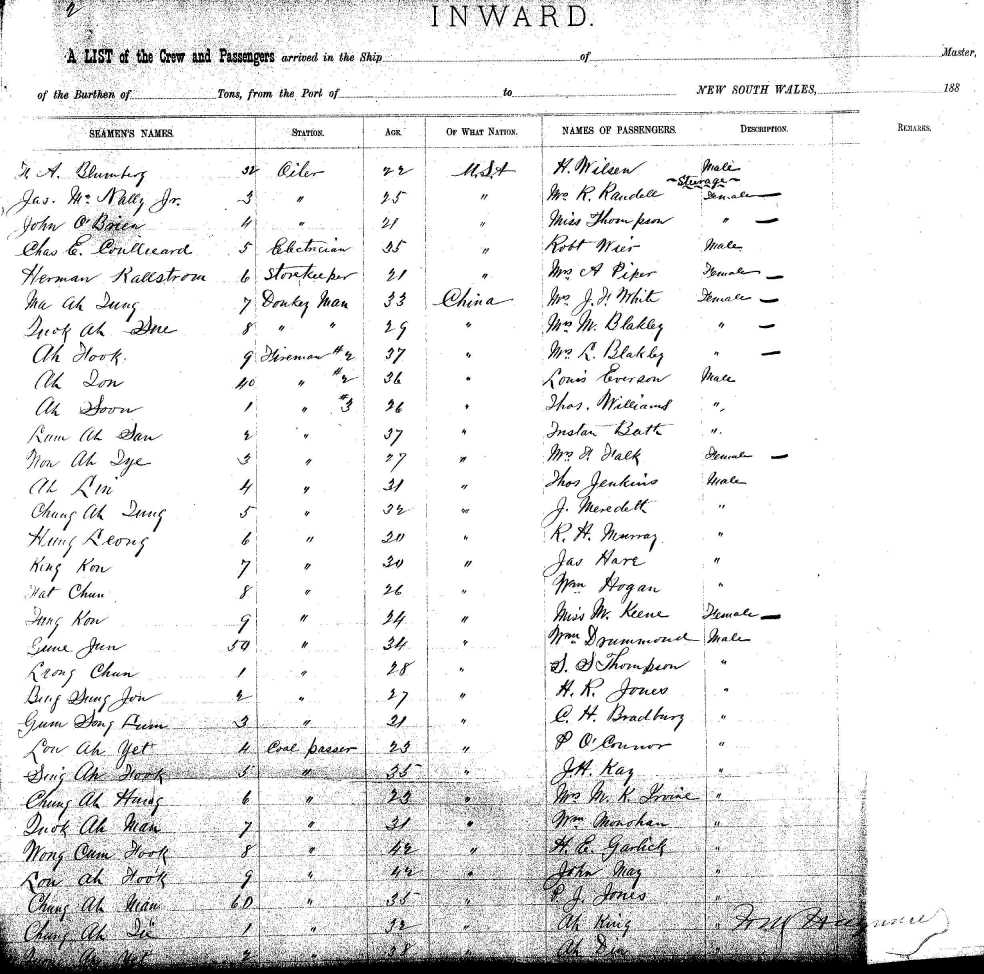 2
INWARD.
A LIST of the Crew and Passengers arrived in the Ship of Master,
of the Burthen of Tons, from the Port of to NEW SOUTH WALES, 188
SEAMEN'S NAMES. STATION. AGE. OF WHAT NATION. NAMES OF PASSENGERS. DESCRIPTION. REMARKS.
A. Blumberg 32 Oiler 22 U.S.A H. Wilsen Male
~Sturage~
Jas. Mc Nally Jr. 3 " 25 " Mrs R. Randell Female —
John O'Brien 4 " 21 " Miss Thompson " —
Chas E. Coullieard 5 Electrician 35 " Robt Wier Male
Herman Kallstrom 6 Storekeeper 21 " Mrs A Piper Female —
Ma Ah Tung 7 Donkey Man 33 China Mrs J. F. White Female —
Quok Ah 8 " " 29 " Mrs M. Blakley " —
Ah Hook. 9 Fireman #2 37 " Mrs L. Blakley " —
Ah Ton 40 " #2 36 " Louis Everson Male
Ah Soon 1 " #3 26 " Thos. Williams "
Lum Ah San 2 " 37 " Bath "
Won Ah Tye 3 " 27 " Mrs F. Falk Female —
Ah Lin 4 " 31 " Thos Jenkins Male
Chung Ah Tung 5 " 32 " J. Meredith "
Hung Leong 6 " 30 " R. H. Murray "
King Kon 7 " 30 " Jas Hare "
Chun 8 " 26 " Wm Hogan "
Fung Kon 9 " 24 " Miss M. Keene Female —
Jun 50 " 34 " Wm Drummond Male
Leong Chun 1 " 28 " S. S Thompson "
Bing Sung Jon 2 " 27 " H. R. Jones "
Gum Song Lum 3 " 21 " C. H. Bradbury "
Lou Ah Yet 4 Coal passer 23 " P O'Connor "
Sing Ah Hook 5 " 35 " J. H. Kay "
Chung Ah Hung 6 " 23 " Mrs M. K. Irvine "
Quok Ah Man 7 " 31 " Wm Monohan "
Wong Cum Hook 8 " 42 " H. E. Garlick "
Lou Ah Hook 9 " 42 " John May "
Chung Ah Man 60 " 35 " P. J. Jones "
Chung Ah 1 " 32 " Ah King "
Ah Yet 2 " 28 " Ah "